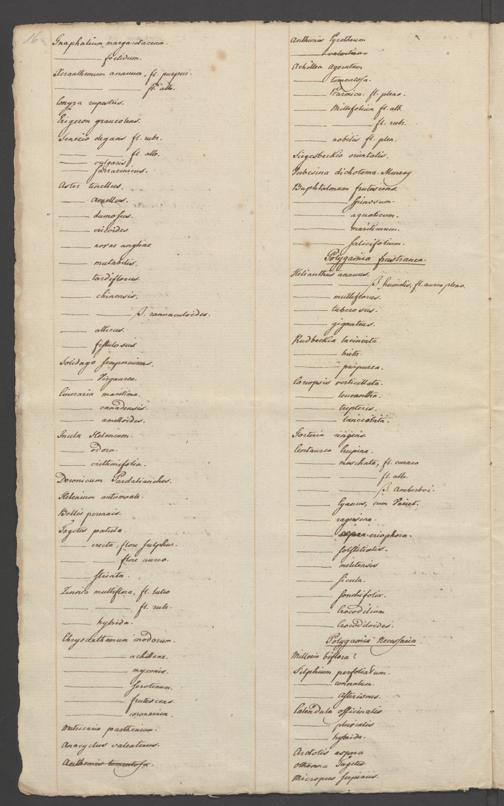 16.
Gnaphalium margaritaceum.
——— foetidum.
Xeranthemum annuum, fl. purpur.
——— ——— fl. alb.
Conyza rupestris.
Erigeron graveolens.
Senecio elegans fl. rubr.
——— ——— fl. alb.
——— vulgaris
——— sarracenicus.
Aster tenellus.
——— Amellus.
——— dumosus.
——— ericoides
——— novae angliae
——— mutabilis.
——— tardiflorus
——— chinensis.
——— ——— β. rannunculoides.
——— alticus.
——— fistulosus
Solidago sempervirens.
——— Virgaurea.
Cineraria maritima.
——— canadensis
——— amelloides.
Inula Helenium.
——— odora.
——— crithmifolia.
Doronicum Pardalianches.
Helenium autumnale.
Bellis perennis.
Tagetes patula.
——— erecta, flore sulphur.
——— ——— flore aureo.
——— striata.
Zinnia multiflora, fl. luteo
——— ——— fl. rubr.
——— hybrida.
Chrysanthemum inodorum.
——— achilleae.
——— myconis.
——— serotinum.
——— frutescens.
——— coronarium.
Matricaria parthenium.
Anacyclus valentinus.
Anthemis tomentosa.
Anthemis Pyrethrum
——— valentina
Achillea Ageratum
——— tomentosa.
——— Ptarmica. fl. pleno.
——— Millefolium fl. alb.
——— ——— fl. rubr.
——— nobilis fl. plen.
Siegesbeckia orientalis.
Verbesina dichotoma Murray
Buphthalmum frutescens.
——— spinosum.
——— aquaticum.
——— maritimum.
——— salicifolium.
Polygamia frustranea.
Helianthus annuus.
——— ——— β. humilis, fl. aureo pleno.
——— multiflorus.
——— tuberosus.
——— giganteus.
Rudbeckia laciniata
——— hirta.
——— purpurea.
Coreopsis verticillata.
——— leucantha.
——— tripteris.
——— lanceolata.
Gorteria rigens
Centaurea Crupina.
——— moschata, fl. cuneo
——— ——— fl. alb.
——— ——— β. Amberboi.
——— Cyanus, cum Variet.
——— ragusina.
——— eriophora.
——— solstitialis.
——— melitensis
——— sicula.
——— sonchifolia.
——— Crocodilium
——— Crocodiloides.
Polygamia Necessaria
Milleria biflora?
Silphium perfoliatum.
——— connatum.
——— Asteriscus.
Calendula officinalis
——— pluvialis
——— hybrida.
Arctotis aspera
Othonna Tagetes
Micropus supinus.